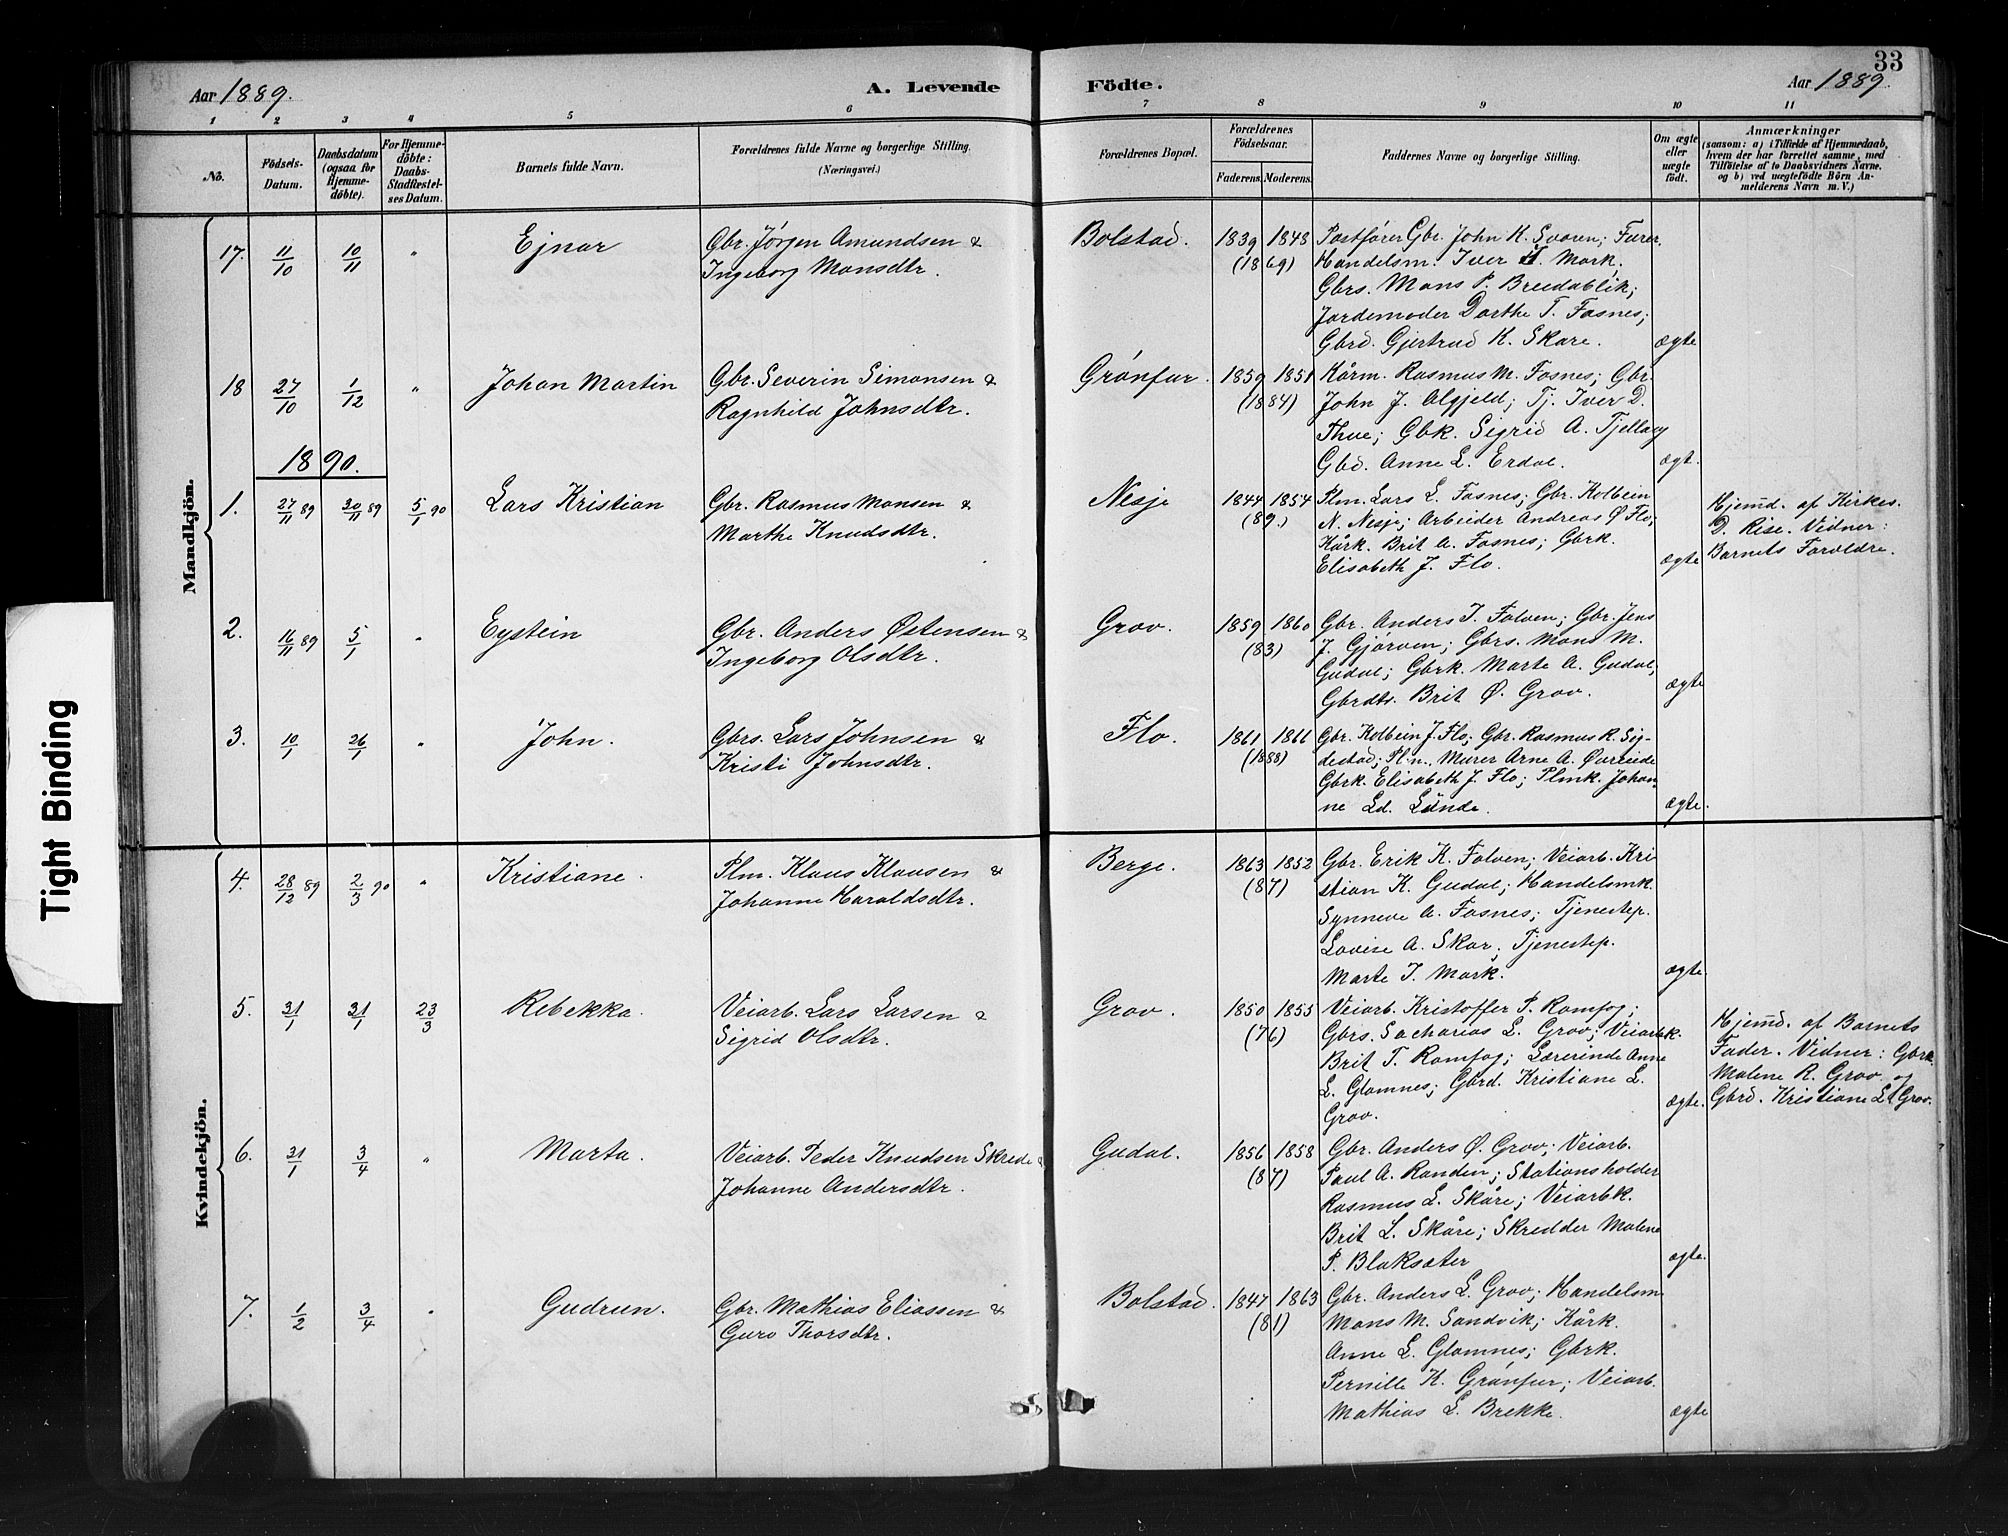 33
Aar 1889.
A. Levende
Födte.
Aar 1889.
1 2 3 4 5 6 7 8 9 10 11
No.
Födsels-
Datum.
Daabsdatum
(ogsaa for
Hjemme-
døbte).
For Hjemme-
døbte:
Daabs-
Stadfæstel-
ses Datum.
Barnets fulde Navn.
Forældrenes fulde Navne og borgerlige Stilling.
(Næringsvei.)
Forældrenes Bopæl.
Forældrenes
Födselsaar.
Faderens. Moderens.
Faddernes Navne og borgerlige Stilling.
Om ægte
eller
uægte
født.
Anmærkninger
(saasom: a) i Tilfælde af Hjemmedaab,
hvem der har forrettet samme, med
Tilföielse af to Daabsvidners Navne.
og b) ved uægtefödte Börn An-
melderens Navn m. V.)
Mandkjön.
17. 11/10 10/11 " Ejnar
Gbr. Jörgen Amundsen &
Ingeborg Monsdtr.
Bolstad.
1839 1848
(1869)
Postfører Gbr. John K. Svoren; Furer,
Handelsm. Iver I. Mork,
Gbrs. Mons P. Breidablik;
Jordemoder Dorthe T. Fosnes;
Gbrd. Gjertrud K. Skare.
ægte
18 27/10 1/12 " Johan Martin
Gbr. Severin Simonsen &
Ragnhild Johnsdtr.
Grönfur.
1859 1851
(1884)
Kårm. Rasmus M. Fosnes; Gbr.
John J. Algjeld; Tj. Iver D.
Thue; Gbk. Sigrid A. Tjellaug
Gbd. Anne L. Erdal.
ægt.
1890.
1. 27/11 89 30/11 89 5/1 90 Lars Kristian
Gbr. Rasmus Monsen &
Marthe Knudsdtr.
Nesje
1844 1854
(89.)
Plm. Lars L. Fosnes; Gbr. Kolbein
N. Nesje; Arbeider Andreas Ø Flo,
Kårk. Brit A. Fosnes; Gbrk.
Elisabeth J. Flo.
ægte
Hjemd. af Kirkes.
D. Rise. Vidner:
Barnets Forældre.
2. 16/11 89 5/1 " Eystein
Gbr. Anders Østensen &
Ingeborg Olsdtr.
Grov.
1859 1860
(83)
Gbr. Anders I. Folven; Gbr. Jens
J. Gjörven; Gbrs. Mons M.
Gudal; Gbrk. Marte A. Gudal,
Gbrdtr. Brit Ø. Grov.
ægte
3. 10/1 26/1 " John.
Gbrs. Lars Johnsen &
Kristi Johnsdtr.
Flo.
1861 1866
(1888)
Gbr. Kolbein J. Flo; Gbr. Rasmus R. Sig-
destad; Plm., Murer Arne A. Øvreeide
Gbrk. Elisabeth J. Flo; Plmk. Johan-
ne Ld. Lunde.
ægte.
Kvindekjön.
4. 28/12 89 2/3 90 " Kristiane.
Plm. Klaus Klausen &
Johanne Haraldsdtr.
Berge.
1863 1852
(87)
Gbr. Erik K. Folven; Veiarb. Kri
stian K. Gudal; Handelsmk.
Synneve A. Fosnes; Tjenestep.
Lovise A. Skar; Tjenestep.
Marte I. Mork.
ægte.
5. 31/1 31/1 23/3 Rebekka.
Veiarb. Lars Larsen &
Sigrid Olsdtr.
Grov.
1850 1855
(76)
Veiarb. Kristoffer P. Ramfog;
Gbrs. Sacharias L. Grov; Veiarbk.
Brit T. Ramfog; Lærerinde Anne
L. Glomnes; Gbrd. Kristiane L.
Grov.
ægte.
Hjemd. af Barnets
Fader. Vidner: Gbrk
Malene R. Grov og
Gbrd. Kristiane L. Grov.
6. 31/1 3/4 " Marta.
Veiarb. Peder Knudsen Skrede &
Johanne Andersdtr.
Gudal.
1856 1858
(87)
Gbr. Anders Ø. Grov; Veiarb.
Paul A. Randen; Stationsholder
Rasmus L. Skåre; Veiarbk.
Brit L. Skåre; Skredder Malene
P. Blaksæter
ægte.
7. 1/2 3/4 " Gudrun.
Gbr. Mathias Eliassen &
Guro Thorsdtr.
Bolstad.
1847 1863
(81)
Gbr. Anders L. Grov; Handelsm
Mons M. Sandvik; Kårk.
Anne L. Glomnes; Gbrk.
Pernille K. Grönfur; Veiarb.
Mathias L. Brekke.
ægte
Tight Binding